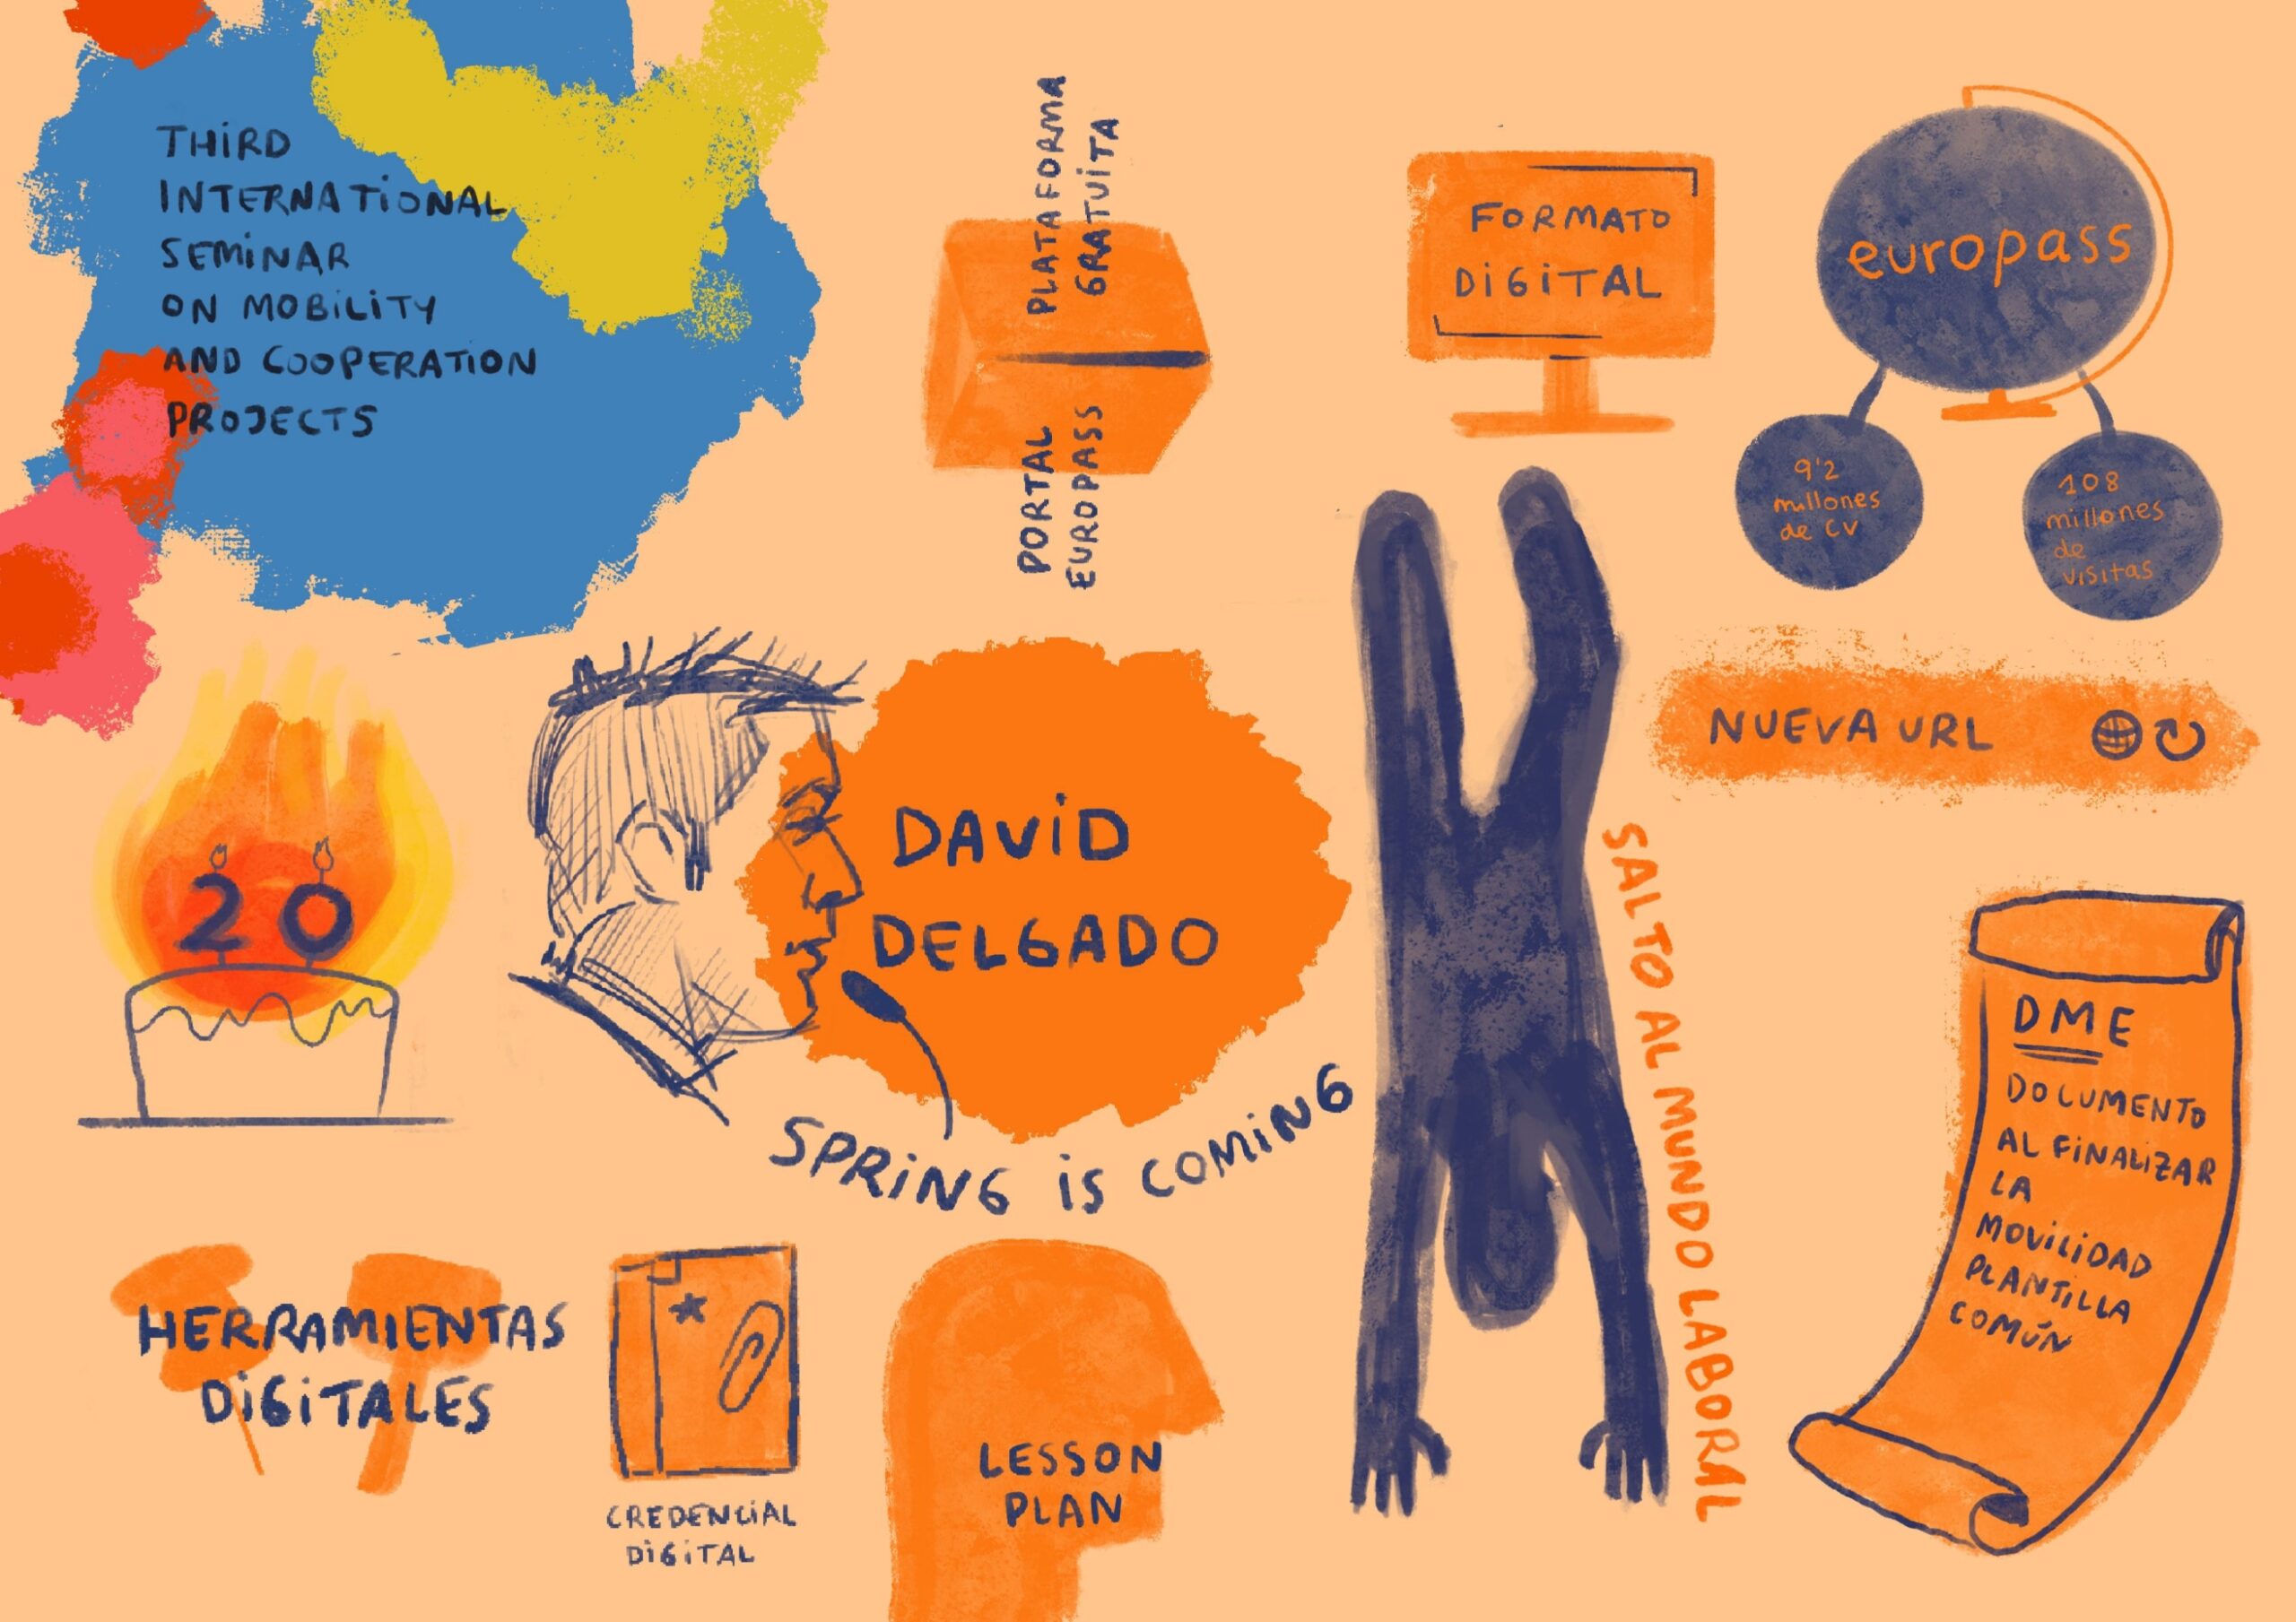 THIRD
INTERNATIONAL
SEMINAR
ON MOBILITY
AND COOPERATION
PROJECTS
PLATAFORMA
GRATUITA
PORTAL
EUROPASS
FORMATO
DIGITAL
europass
9'2
millones
de CV
108
millones
de
visitas
NUEVA URL
20
DAVID
DELGADO
SPRING IS COMING
SALTO AL MUNDO LABORAL
DME
DOCUMENTO
AL FINALIZAR
LA
MOVILIDAD
PLANTILLA
COMÚN
HERRAMIENTAS
DIGITALES
CREDENCIAL
DIGITAL
LESSON
PLAN